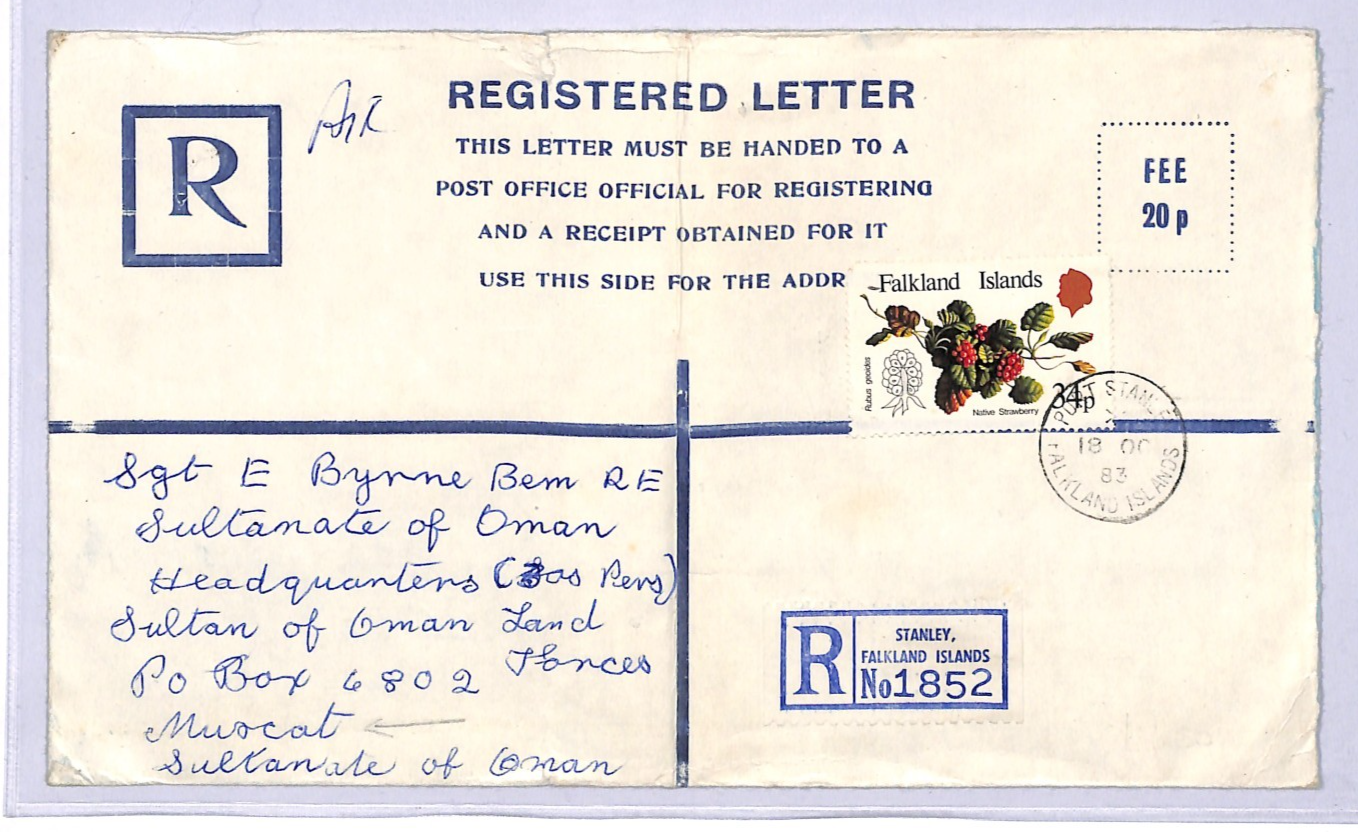 REGISTERED LETTER
R
Air
THIS LETTER MUST BE HANDED TO A
POST OFFICE OFFICIAL FOR REGISTERING
AND A RECEIPT OBTAINED FOR IT
USE THIS SIDE FOR THE ADDR
FEE
20 p
Falkland Islands
Rubus geoides
Native Strawberry
34p
PORT STANLEY
18 OC
83
FALKLAND ISLANDS
Sgt E Byrne Bem RE
Sultanate of Oman
Headquarters ( Pers)
Sultan of Oman Land
Forces
PO Box 6802
Muscat
Sultanate of Oman
R
STANLEY,
FALKLAND ISLANDS
No1852